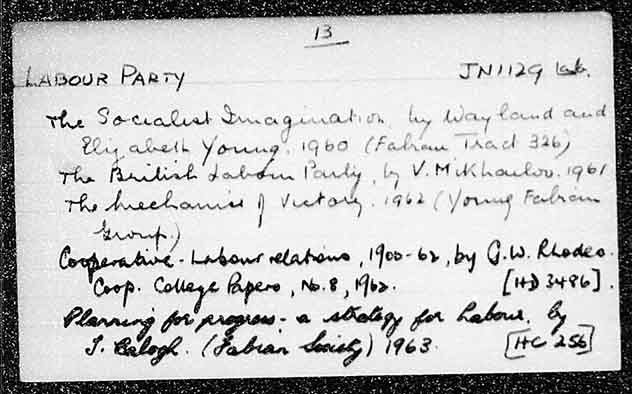 13
LABOUR PARTY JN1129 Lab.
The Socialist Imagination, by Wayland and
Elizabeth Young. 1960 (Fabian Tract 326)
The British Labour Party, by V. Mikhailov. 1961
The Mechanics of Victory. 1962 (Young Fabian
Group.)
Cooperative-Labour relations, 1900-62, by G.W. Rhodes.
Coop. College Papers, No. 8, 1962. [HD 3486].
Planning for progress - a strategy for Labour, by
T. Balogh. (Fabian Society) 1963. [HC 256]